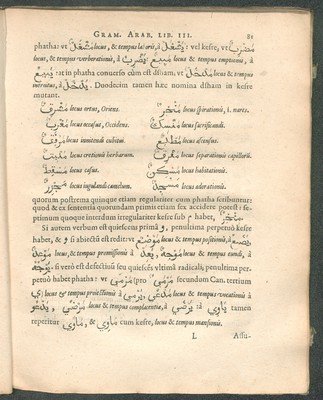 GRAM. ARAB. LIB. III. 81
phatha: vt مَشْغَلٌ locus, & tempus laboris, à يَشْغَلُ: vel kesre, vt مَضْرِبٌ
locus, & tempus verberationis, à يَضْرِبُ: مَبِيعٌ locus & tempus emptionis, à
يَبِيعُ: at in phatha conuerso cum est dham: vt مَدْخَلٌ locus & tempus
introitus, à يَدْخُلُ. Duodecim tamen hæc nomina dham in kesre
mutant.
مَشْرِقٌ locus ortus, Oriens. مَنْخِرٌ locus spirationis, i. nares.
مَغْرِبٌ locus occasus, Occidens. مَنْسِكٌ locus sacrificandi.
مَرْفِقٌ locus innitendi cubitui. مَطْلِعٌ locus ascensus.
مَنْبِتٌ locus cretionis herbarum. مَفْرِقٌ locus separationis capillorũ.
مَسْقِطٌ locus casus. مَسْكِنٌ locus habitationis.
مَجْزِرٌ locus iugulandi camelum. مَسْجِدٌ locus adorationis.
quorum postrema quinque etiam regulariter cum phatha scribuntur:
quod & ex sententia quorundam primis etiam sex accidere potest: se-
ptimum quoque interdum irregulariter kesre sub م habet, مِنْخِرٌ.
Si autem verbum est quiescens primâ و, penultima perpetuò kesre
habet, & و si abiectâ est redit: vt مَوْضِعٌ locus & tempus positionis, à يَضَعُ
مَوْعِدٌ locus, & tempus promissionis, à يَعِدُ, مَوْجِهٌ locus & tempus eundi, à
يَوْجَهُ: si verò est defectiuũ seu quiescẽs vltimâ radicali, penultima per-
petuò habet phatha: vt مَرْمًى (pro مَرْمَيٌ secundum Can. tertium
ي) locus & tempus proiectionis à يَرْمِي: مَدْعًى locus & tempus vocationis à
يَدْعُو, مَرْضًى locus & tempus complacentiæ, à يَرْضَى: à يَأْوِي tamen
reperitur مَأْوًى, & مَأْوِي cum kesre, locus & tempus mansionis.
L Assu-